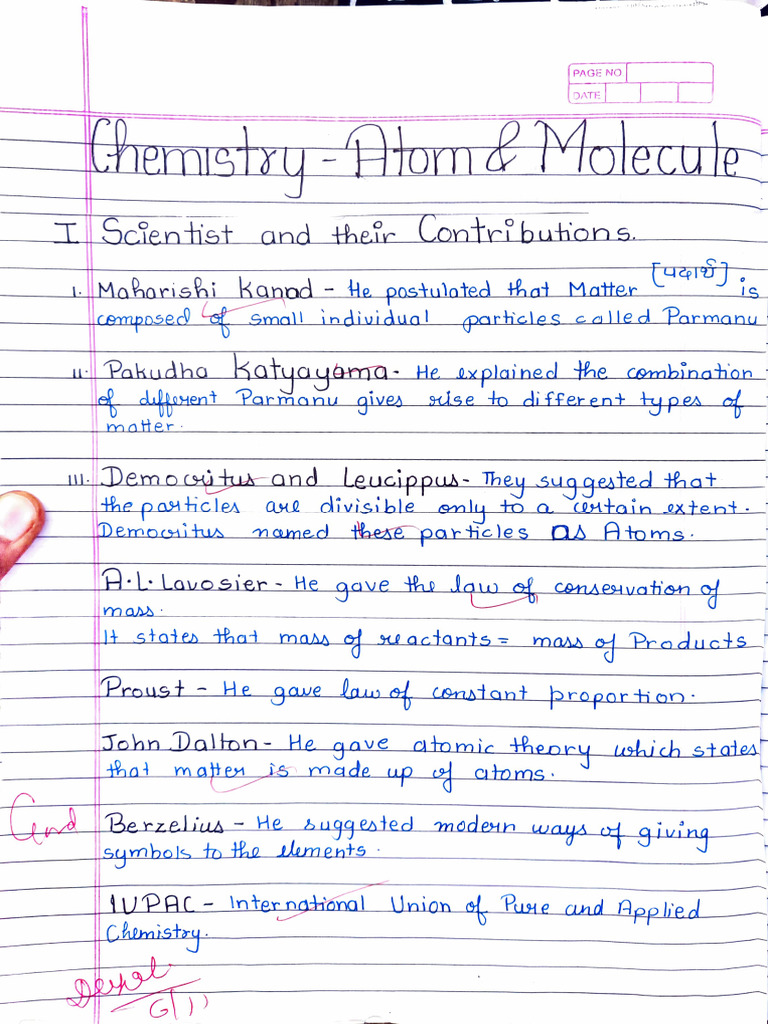 PAGE NO
DATE
Chemistry - Atom & Molecule
I Scientist and their Contributions.
I. Maharishi Kanad - He postulated that Matter [पदार्थ] is
composed of small individual particles called Parmanu
II. Pakudha Katyayama - He explained the combination
of different Parmanu gives rise to different types of
matter.
III. Democritus and Leucippus - They suggested that
the particles are divisible only to a certain extent.
Democritus named these particles as Atoms.
A.L. Lavosier - He gave the law of conservation of
mass.
It states that mass of reactants = mass of Products
Proust - He gave law of constant proportion.
John Dalton - He gave atomic theory which states
that matter is made up of atoms.
Berzelius - He suggested modern ways of giving
symbols to the elements.
IUPAC - International Union of Pure and Applied
Chemistry.
6/11